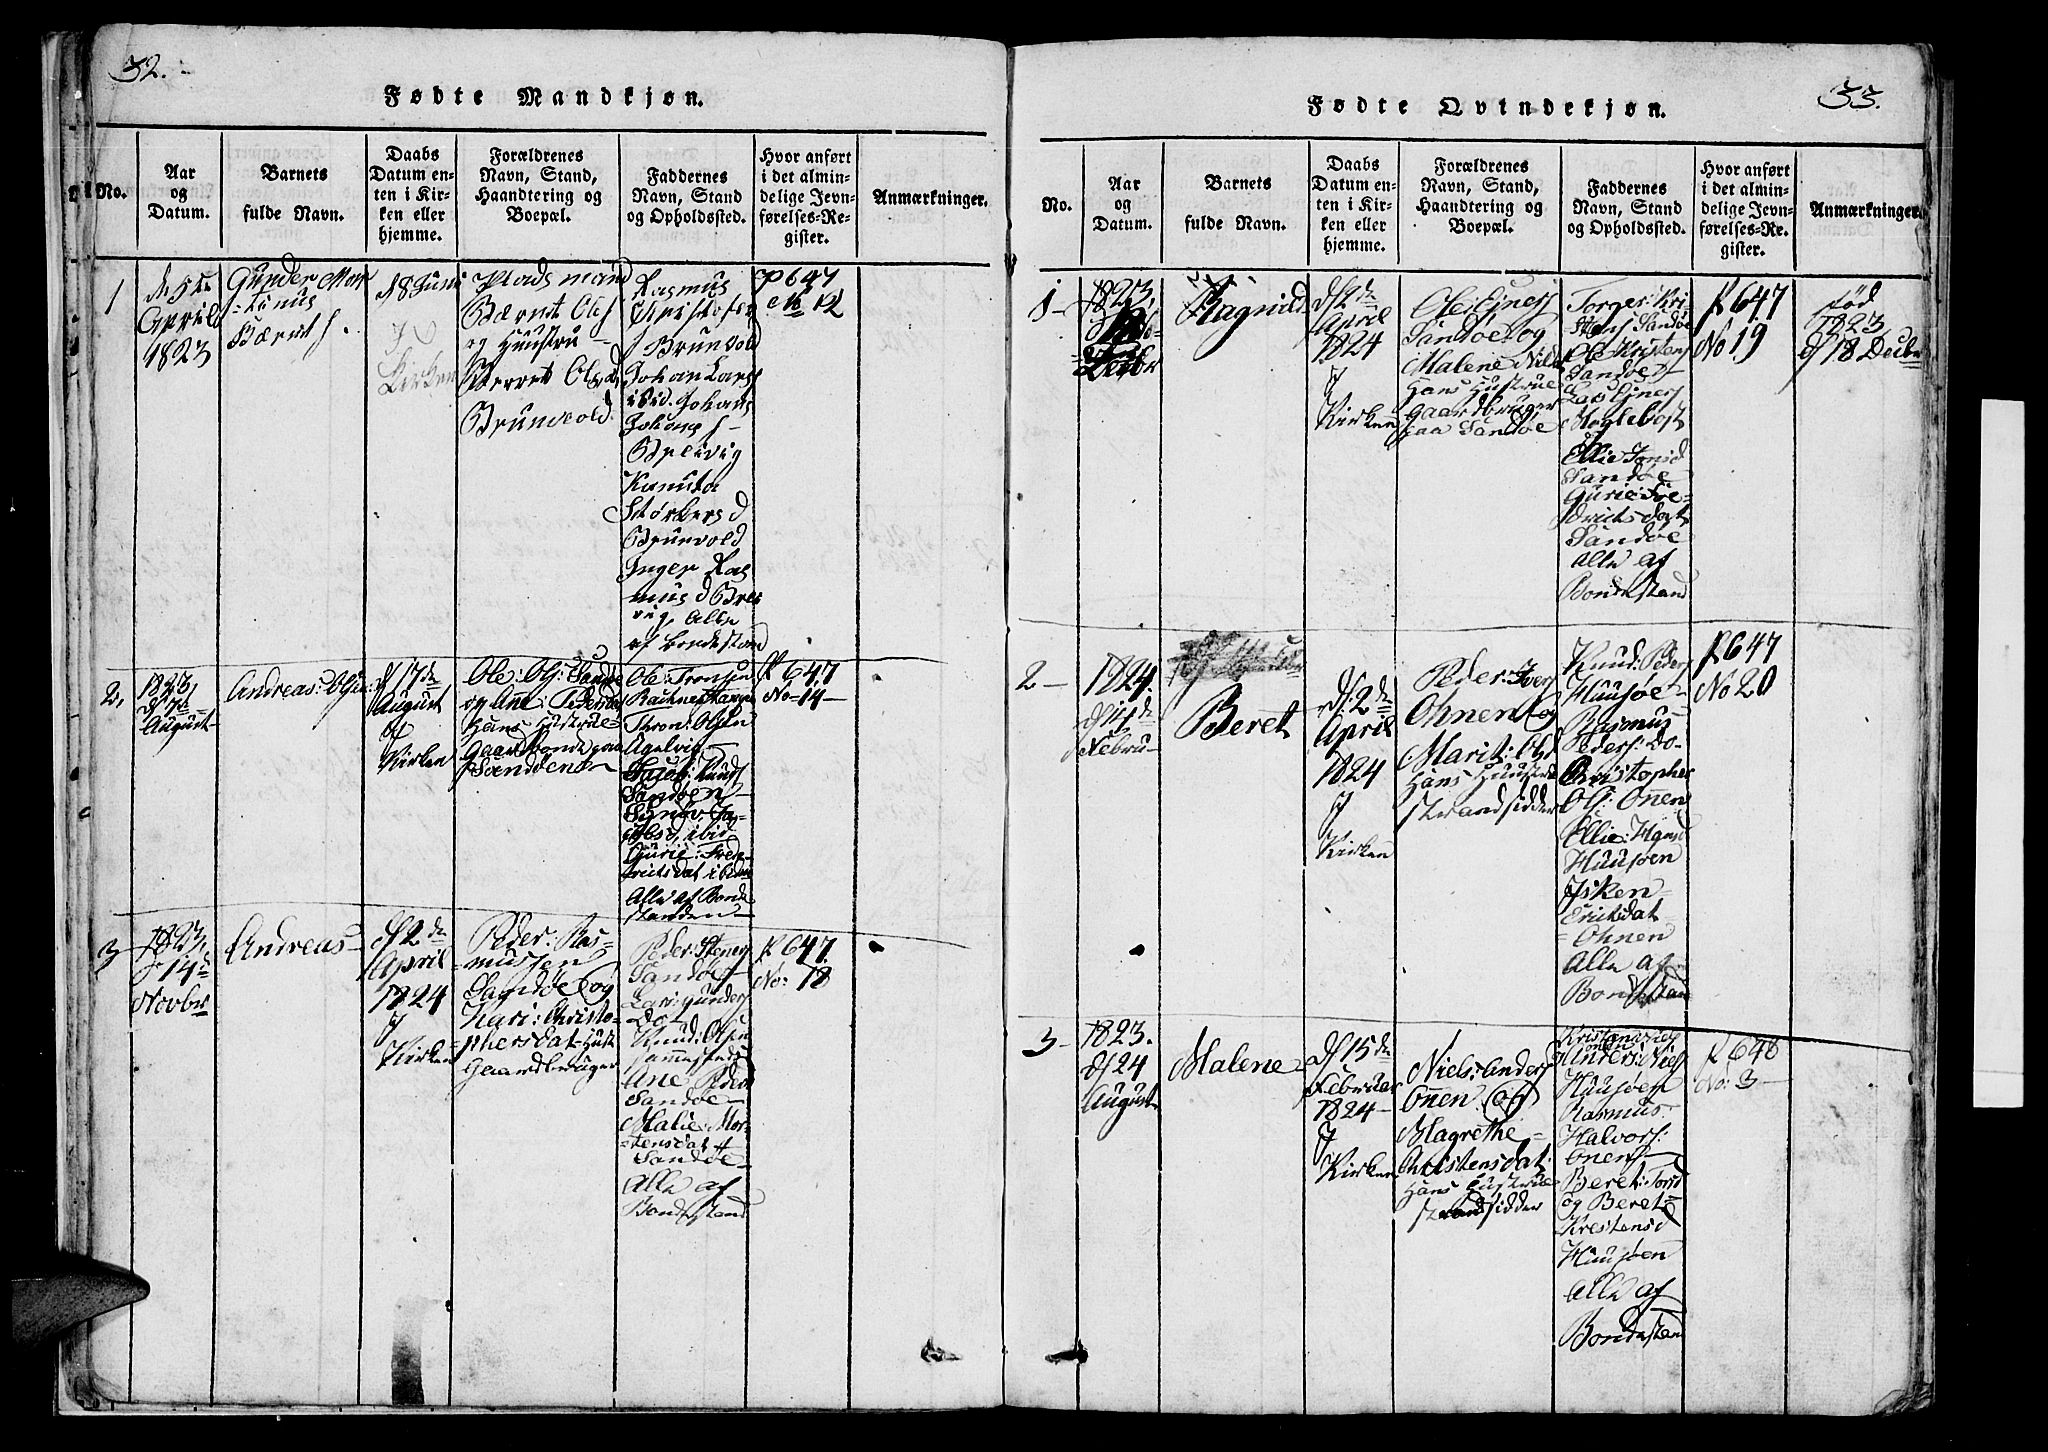 32.
Fødte Mandkjøn.
No.
Aar
og
Datum.
Barnets
fulde Navn.
Daabs
Datum en-
ten i Kir-
ken eller
hjemme.
Forældrenes
Navn, Stand,
Haandtering og
Boepæl.
Faddernes
Navn, Stand
og Opholdssted.
Hvor anført
i det almin-
delige Jevn-
førelses-Re-
gister.
Anmærkninger.
1
d. 5te
April
1823
Gunder Mar
-tinus
Bærnt s.
d 8 Juni
I
Kirken
Plads mand
Bærndt Ols
og Huustru
Berret Olsd
Brunvold
Rasmus
Christofer
s Brunvold
Johan Lars
ibid. Johans
Johans s
Breivig
Knnuta
Størkers d
Brunvold
Inger Ras
mus d Brei
vig, Alle
af bondestand
P 647
No 12
2,
1823
d 7de
August
Andreas: Olsen:
d 17de
August
I
Kirken
Ole: Ols: Sandøe
og Ane: Pedersdat
Hans Hustrue
Gaardbonde paa
Sandøen
Ole: Tronsen
Tron: Olsen
Agelvig
Jacob: Knuds
Sandøen
Synøv Ja-
cobsd, ibid
Gurie: Frede-
richsdat ibidm
Alle af Bonde
standen
P 647
No 14
3
1823,
d 14de
Novbr
Andreas
d 2de
April
1824
I
Kirken
Peder: Ras-
mussen
Sandøe og
Kari: Christo-
phersdat Hust
Gaardbruger
Peder: Steners
Sandøe
Lars: Gunders
Do
Knud: Olsen
sammesteds
Ane Peders
Sandøe
Malie: Mor-
tensdat
Sandøe
Alle af
Bondestand
P 647.
No: 18
33.
Fødte Qvindekjøn.
No.
Aar
og
Datum.
Barnets
fulde Navn.
Daabs
Datum en-
ten i Kir-
ken eller
hjemme.
Forældrenes
Navn, Stand,
Haandtering og
Boepæl.
Faddernes
Navn, Stand
og Opholdssted.
Hvor anført
i det almin-
delige Jevn-
førelses-Re-
gister.
Anmærkninger.
1
1823,
Decbr
Ragnild
d 2de
April
1824
I
Kirken
Ole: Einers
Sandøe og
Malene Nilsd
Hans Hustrue
Gaardbruger
paa Sandøe
Torger: Kri
stens Sandøe
Ole: Kristens
Sandøe
Lars: Einers
Moglebost
Ellie Jonsd
Sandøe
Gurie: Fre-
drichsdat
Sandøe
Alle af
Bondestand
P 647
No 19
fød
1823
d 18 Decbr
2
1824.
d 14de
Febru
Beret
d 2de
April
1824
I
Kirken
Peder: Ivers
Ohnen og
Marit: Olsd
Hans Huustrue
strandsidder
Knud: Peders
Huusøe
Rasmus
Peders: Do
Christopher
Ols: Onen
Ellie: Hansd
Huusøen
Isken
Erichsdat
Ohnen
Alle af
Bondestand
P 647
No 20
3
1823.
d 24
August
Malene
d 15de
Februar
1824
I
Kirken
Niels: Anders
Onen og
Magrethe
Christensdat:
Hans Hustrue
strandsidder
Kristen: Niels
Onen
Anders: Niels
Huusøen
Rasmus
Halvors:
Onen
Beret: Torsd
og Beret:
Krestensd
Huusøen
Alle af
Bondestand
P 648
No: 3